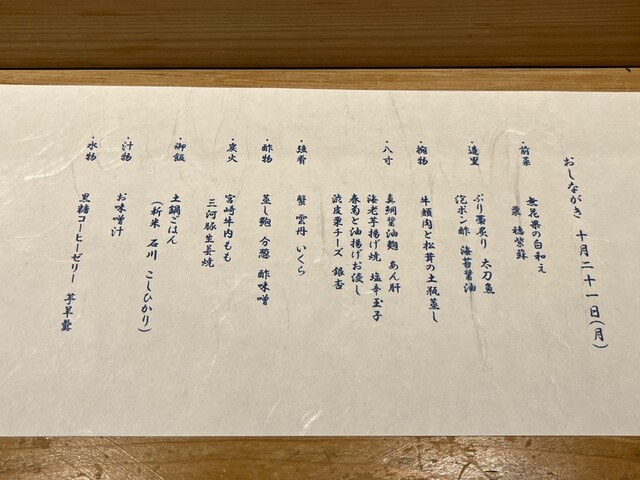 おしながき 十月二十一日(月)
・前菜 無花果の白和え
栗 穂紫蘇
・造里 ぶり藁炙り 太刀魚
泡ポン酢 海苔醤油
・椀物 牛頬肉と松茸の土瓶蒸し
・八寸 真鯛醤油麹 あん肝
海老芋揚げ焼 塩辛玉子
春菊と油揚げお浸し
渋皮栗チーズ 銀杏
・強肴 蟹 雲丹 いくら
・酢物 蒸し鮑 分葱 酢味噌
・炭火 宮崎牛内もも
三河豚生姜焼
・御飯 土鍋ごはん
(新米 石川 こしひかり)
・汁物 お味噌汁
・水物 黒糖コーヒーゼリー 芋羊羹